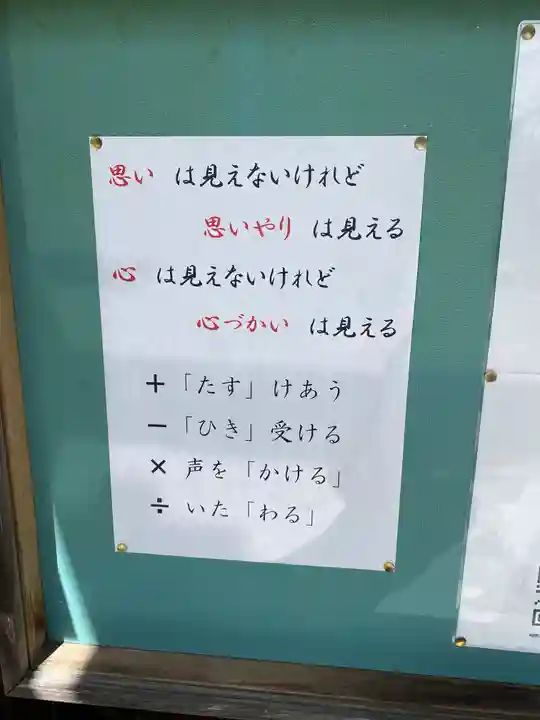 思い は見えないけれど
思いやり は見える
心 は見えないけれど
心づかい は見える
＋「たす」けあう
－「ひき」受ける
× 声を「かける」
÷ いた「わる」